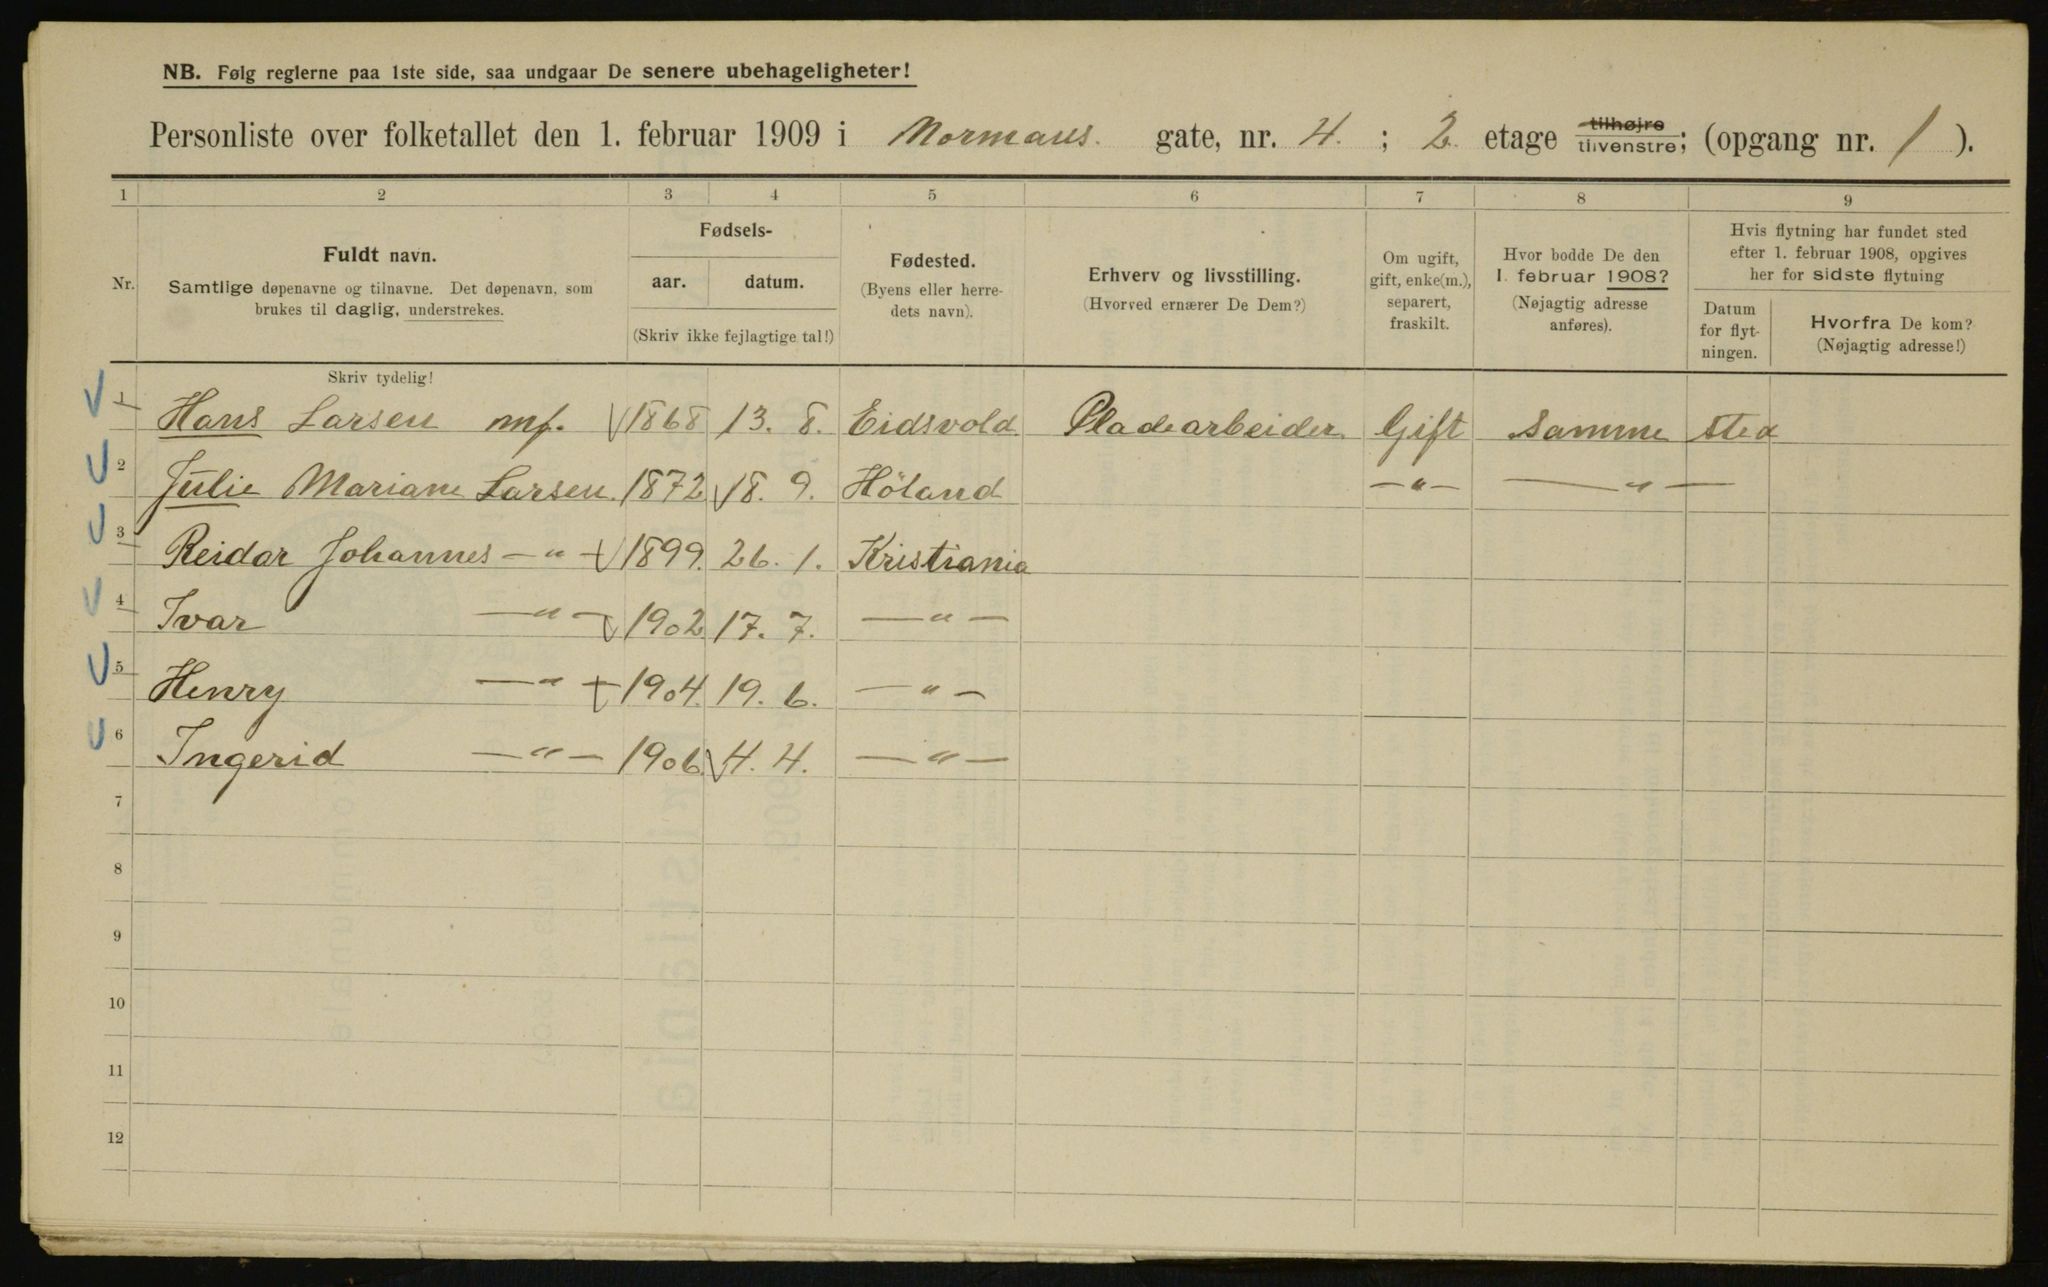 NB. Følg reglerne paa 1ste side, saa undgaar De senere ubehageligheter!
Personliste over folketallet den 1. februar 1909 i Normans. gate, nr. 4. ; 2. etage tilhøjre tilvenstre; (opgang nr. 1 ).
1 2 3 4 5 6 7 8 9
Nr.
Fuldt navn.
Samtlige døpenavne og tilnavne. Det døpenavn, som
brukes til daglig, understrekes.
Fødsels-
aar. datum.
(Skriv ikke fejlagtige tal!)
Fødested.
(Byens eller herre-
dets navn).
Erhverv og livsstilling.
(Hvorved ernærer De Dem?)
Om ugift,
gift, enke(m.),
separert,
fraskilt.
Hvor bodde De den
1. februar 1908?
(Nøjagtig adresse
anføres).
Hvis flytning har fundet sted
efter 1. februar 1908, opgives
her for sidste flytning
Datum
for flyt-
ningen.
Hvorfra De kom?
(Nøjagtig adresse!)
Skriv tydelig!
1 Hans Larsen mf. 1868 13. 8. Eidsvold Pladearbeider Gift Samme sted
2 Julie Mariane Larsen. 1872 18. 9. Höland -"- -"-
3 Reidar Johannes -"- 1899. 26. 1. Kristiania
4 Ivar -"- 1902 17. 7. -"-
5 Henry -"- 1904. 19. 6. -"-
6 Ingerid -"- 1906. 4. 4. -"-
7
8
9
10
11
12